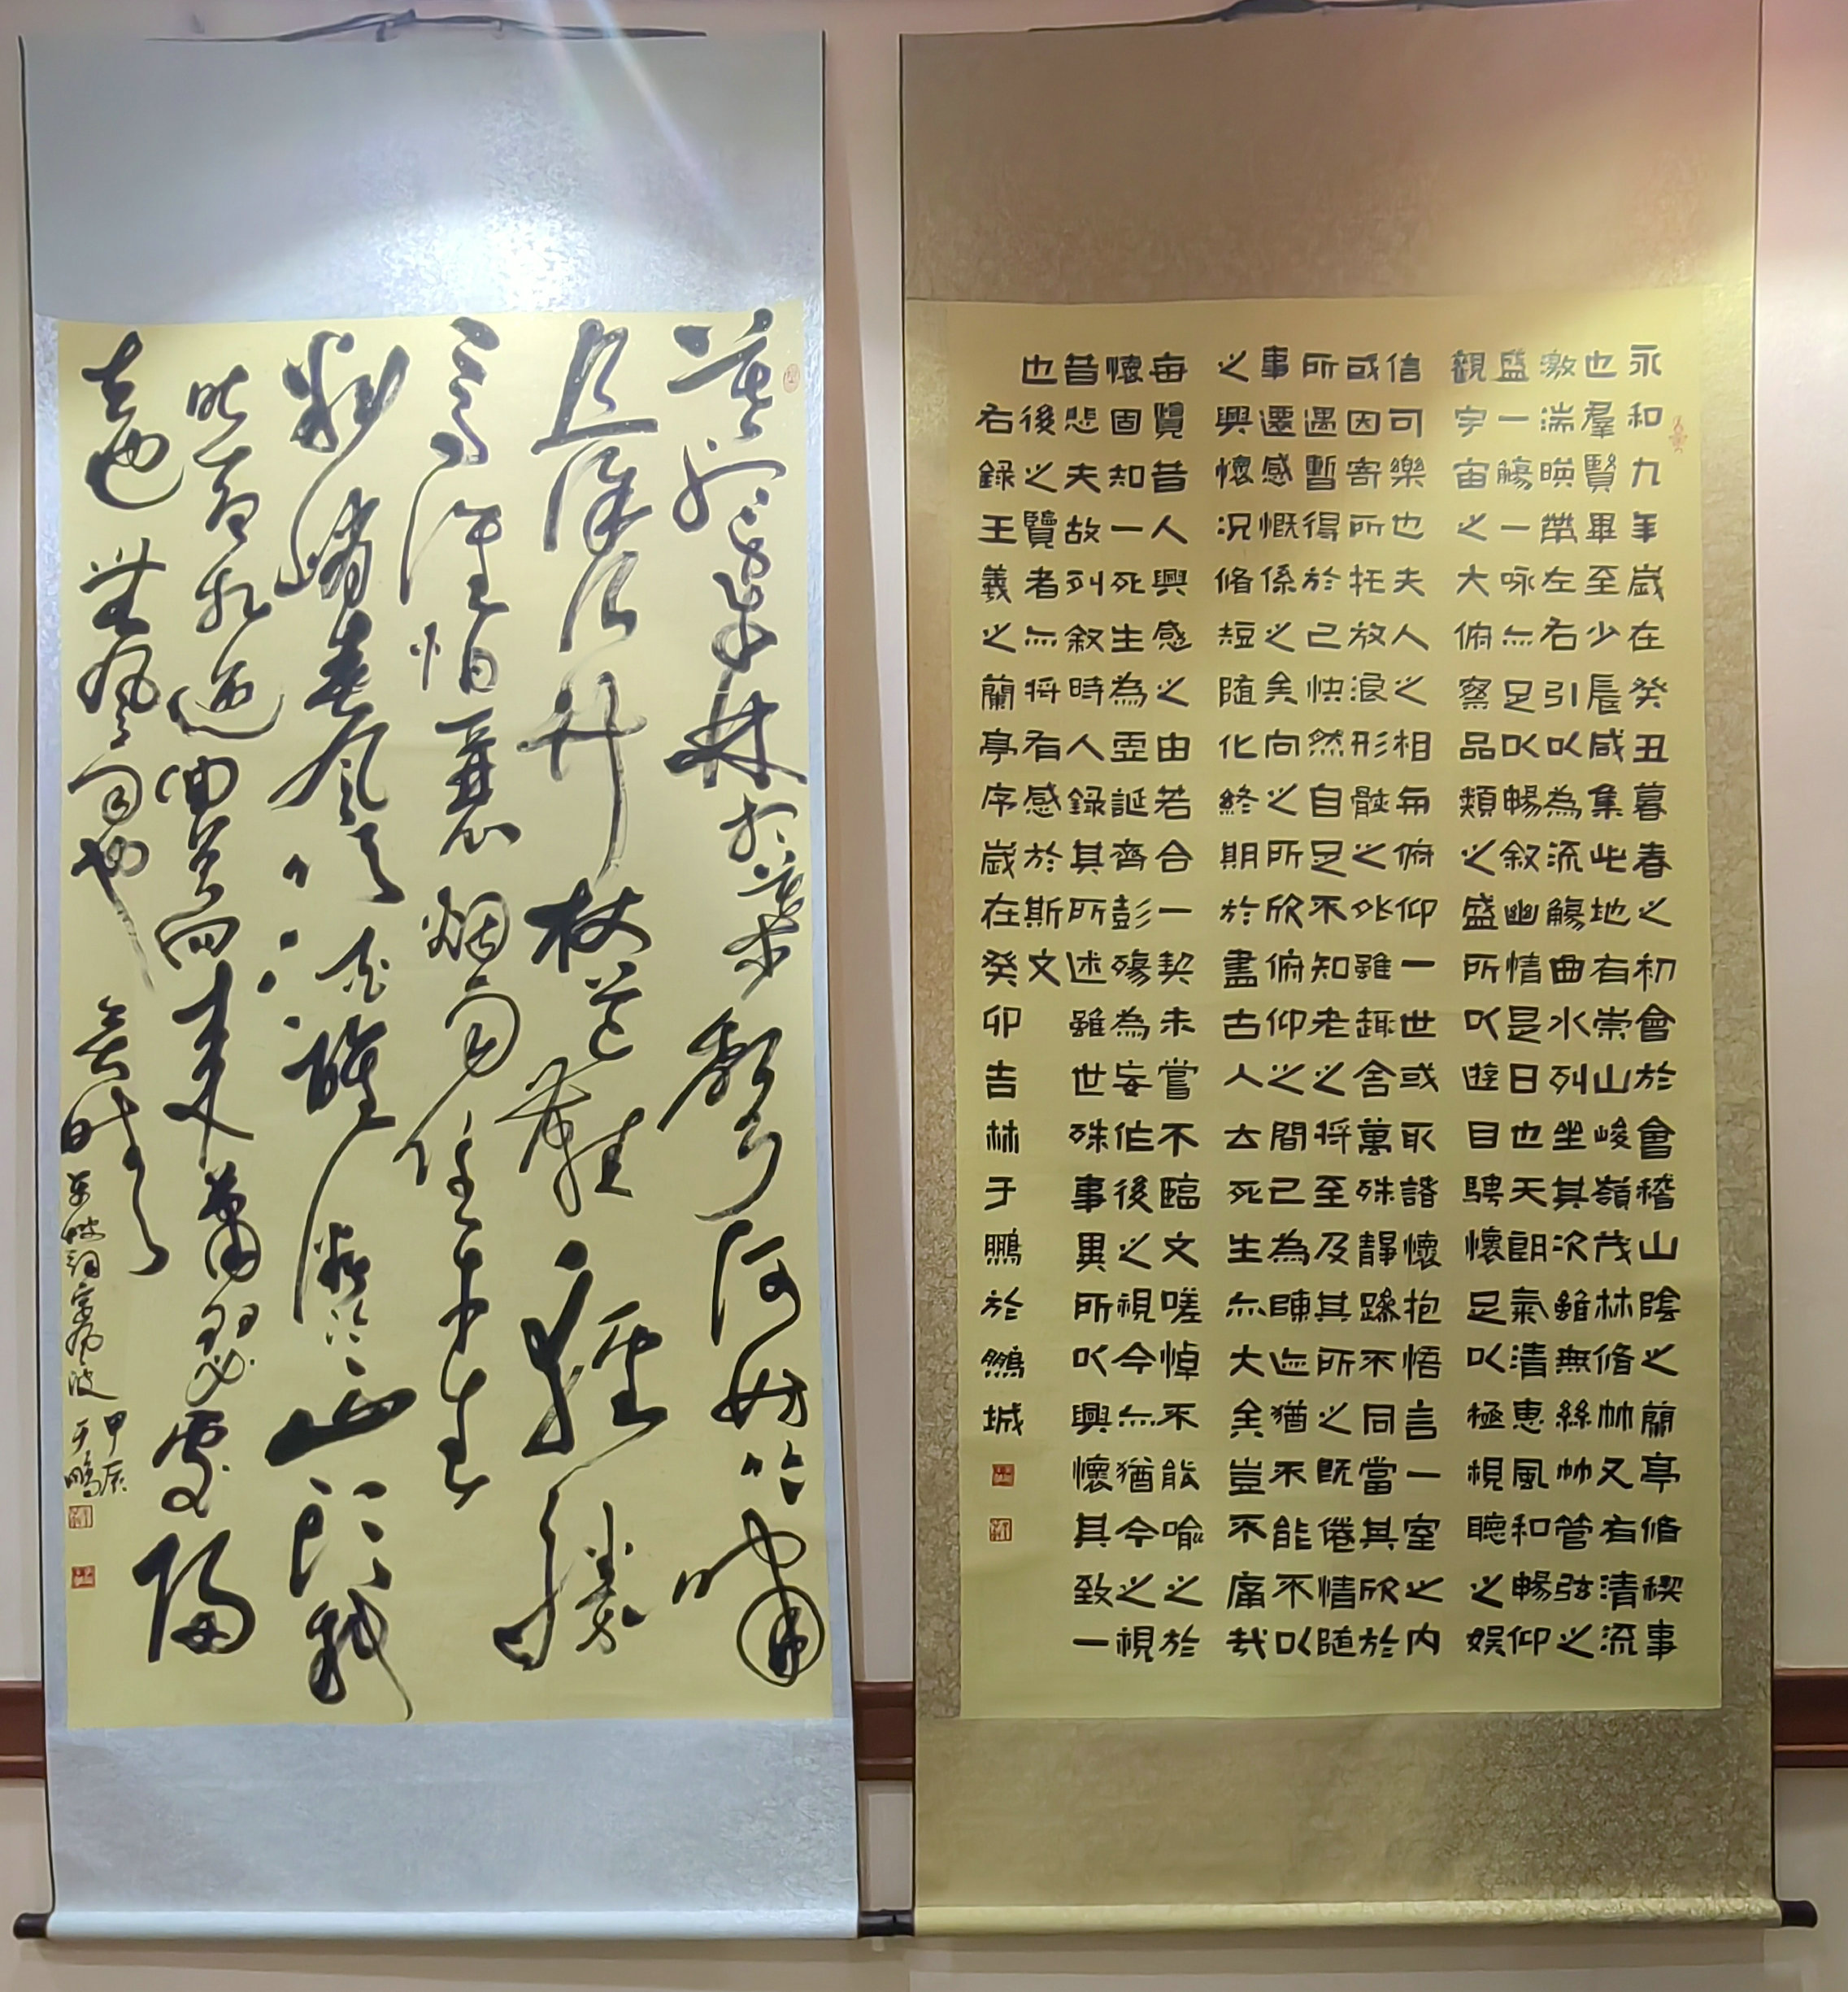 永和九年歲在癸丑暮春之初會於會稽山陰之蘭亭脩禊事
也羣賢畢至少長咸集此地有崇山峻嶺茂林脩竹又有清流
激湍暎帶左右引以為流觴曲水列坐其次雖無絲竹管弦之
盛一觴一咏亦足以暢叙幽情是日也天朗氣清惠風和暢仰
觀宇宙之大俯察品類之盛所以遊目騁懷足以極視聽之娛
信可樂也夫人之相與俯仰一世或取諸懷抱悟言一室之内
或因寄所托放浪形骸之外雖趣舍萬殊靜躁不同當其欣於
所遇暫得於己快然自足不知老之將至及其所之既倦情隨
事遷感慨係之矣向之所欣俯仰之間已為陳迹猶不能不以
之興懷況脩短隨化終期於盡古人云死生亦大矣豈不痛哉
每覽昔人興感之由若合一契未嘗不臨文嗟悼不能喻之於
懷固知一死生為虛誕齊彭殤為妄作後之視今亦猶今之視
昔悲夫故列叙時人錄其所述雖世殊事異所以興懷其致一
也後之覽者亦將有感於斯文
右錄王羲之蘭亭序歲在癸卯吉林于鵬於鵬城
莫聽穿林打葉聲何妨吟嘯
且徐行竹杖芒鞋輕勝
馬誰怕一蓑烟雨任平生
料峭春風吹酒醒微冷山頭斜
照却相迎回首向來蕭瑟處歸
去也無風雨也無晴
東坡詞定風波
甲辰
于鵬